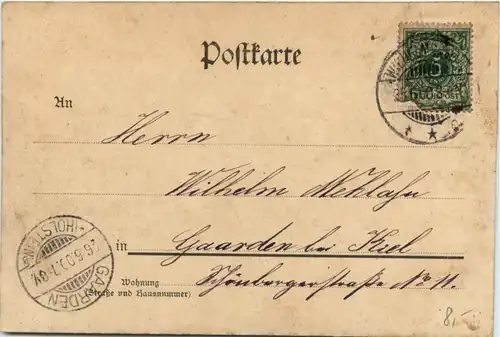 Postkarte
An
Herrn
Wilhelm Mehlahn
in Gaarden bei Kiel
Wohnung Schönbergerstraße No 11.
(Straße und Hausnummer)
GAARDEN
* (HOLSTEIN) *
26.6.00.7-8V.
5
8,-